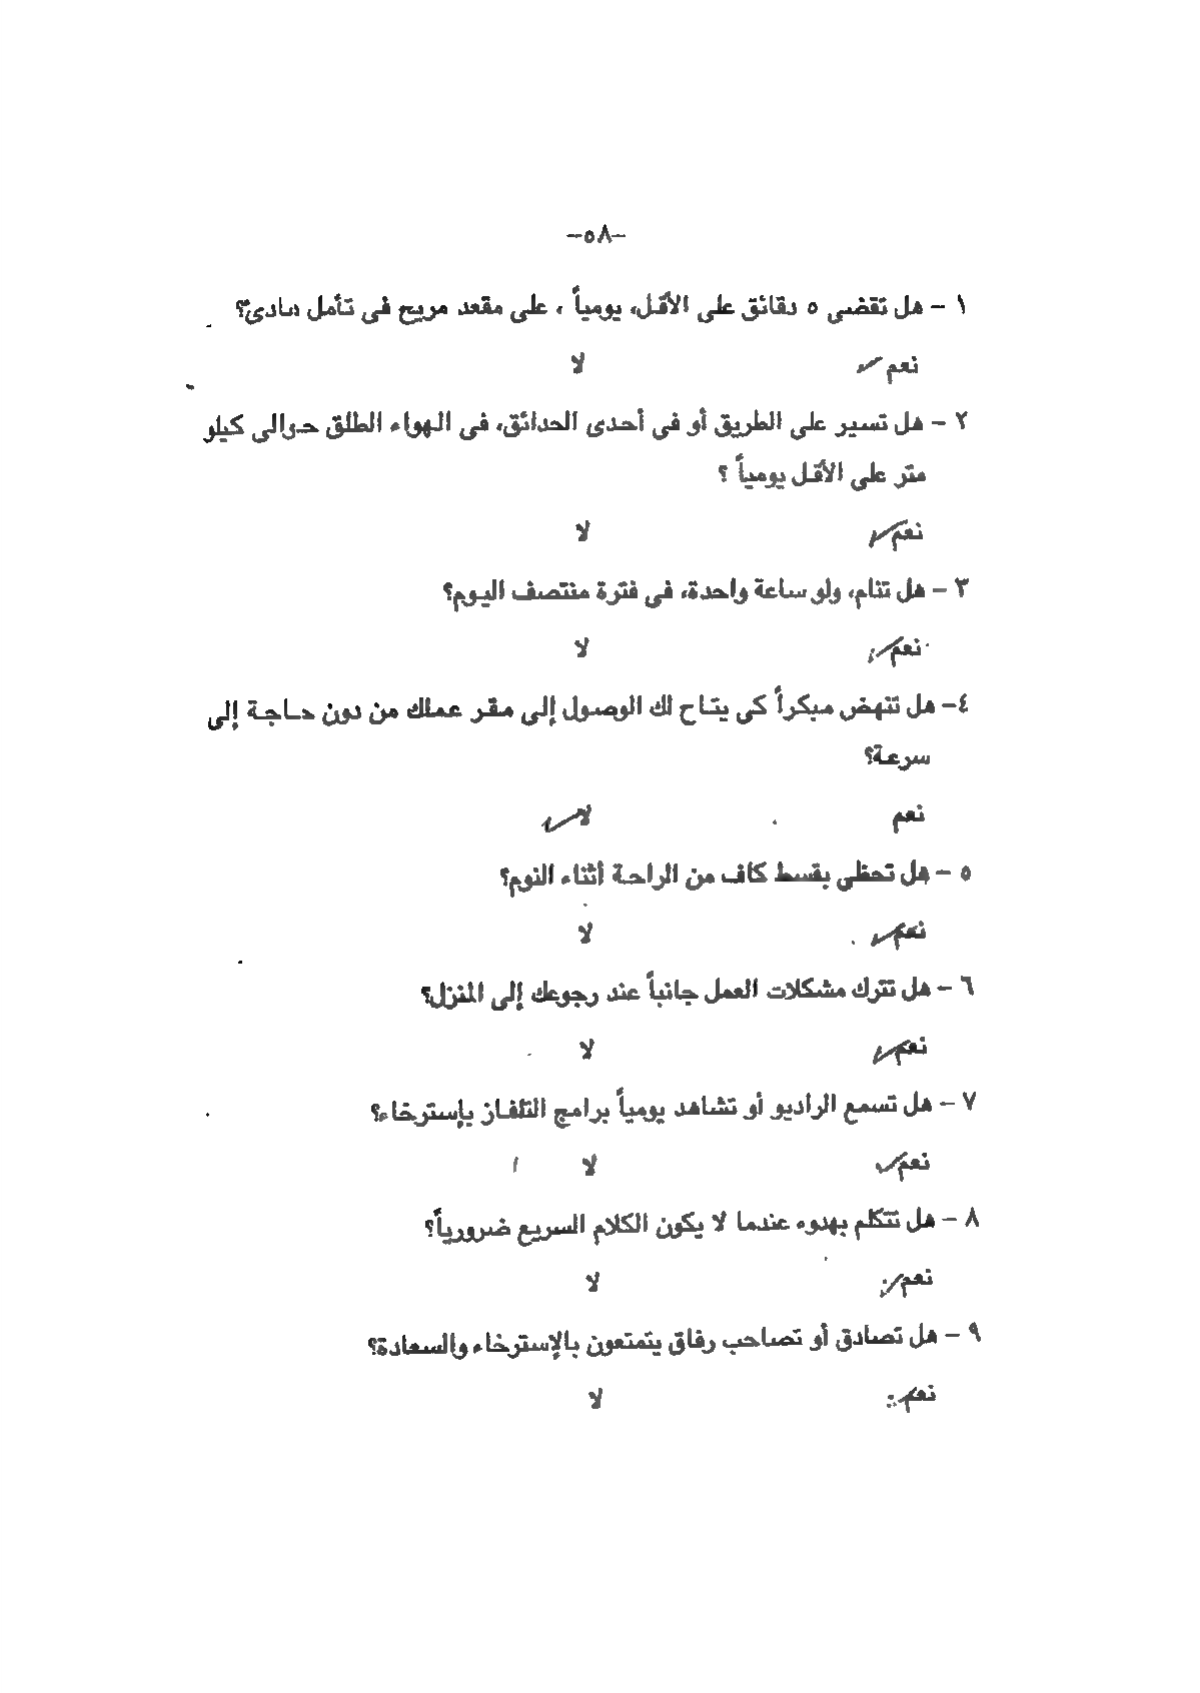 -٥٨-
١ - هل تقضى ٥ دقائق على الأقل، يومياً ، على مقعد مريح فى تأمل هادئ؟
نعم ✓ لا
٢ - هل تسير على الطريق أو فى أحدى الحدائق، فى الهواء الطلق حوالى كيلو
متر على الأقل يومياً ؟
نعم ✓ لا
٣ - هل تنام، ولو ساعة واحدة، فى فترة منتصف اليوم؟
نعم ✓ لا
٤- هل تنهض مبكراً كى يتاح لك الوصول إلى مقر عملك من دون حاجة إلى
سرعة؟
نعم لا ✓
٥ - هل تحظى بقسط كاف من الراحة أثناء النوم؟
نعم ✓ لا
٦ - هل تترك مشكلات العمل جانباً عند رجوعك إلى المنزل؟
نعم ✓ لا
٧ - هل تسمع الراديو أو تشاهد يومياً برامج التلفاز بإسترخاء؟
نعم ✓ لا
٨ - هل تتكلم بهدوء عندما لا يكون الكلام السريع ضرورياً؟
نعم ✓ لا
٩ - هل تصادق أو تصاحب رفاق يتمتعون بالإسترخاء والسعادة؟
نعم ✓ لا